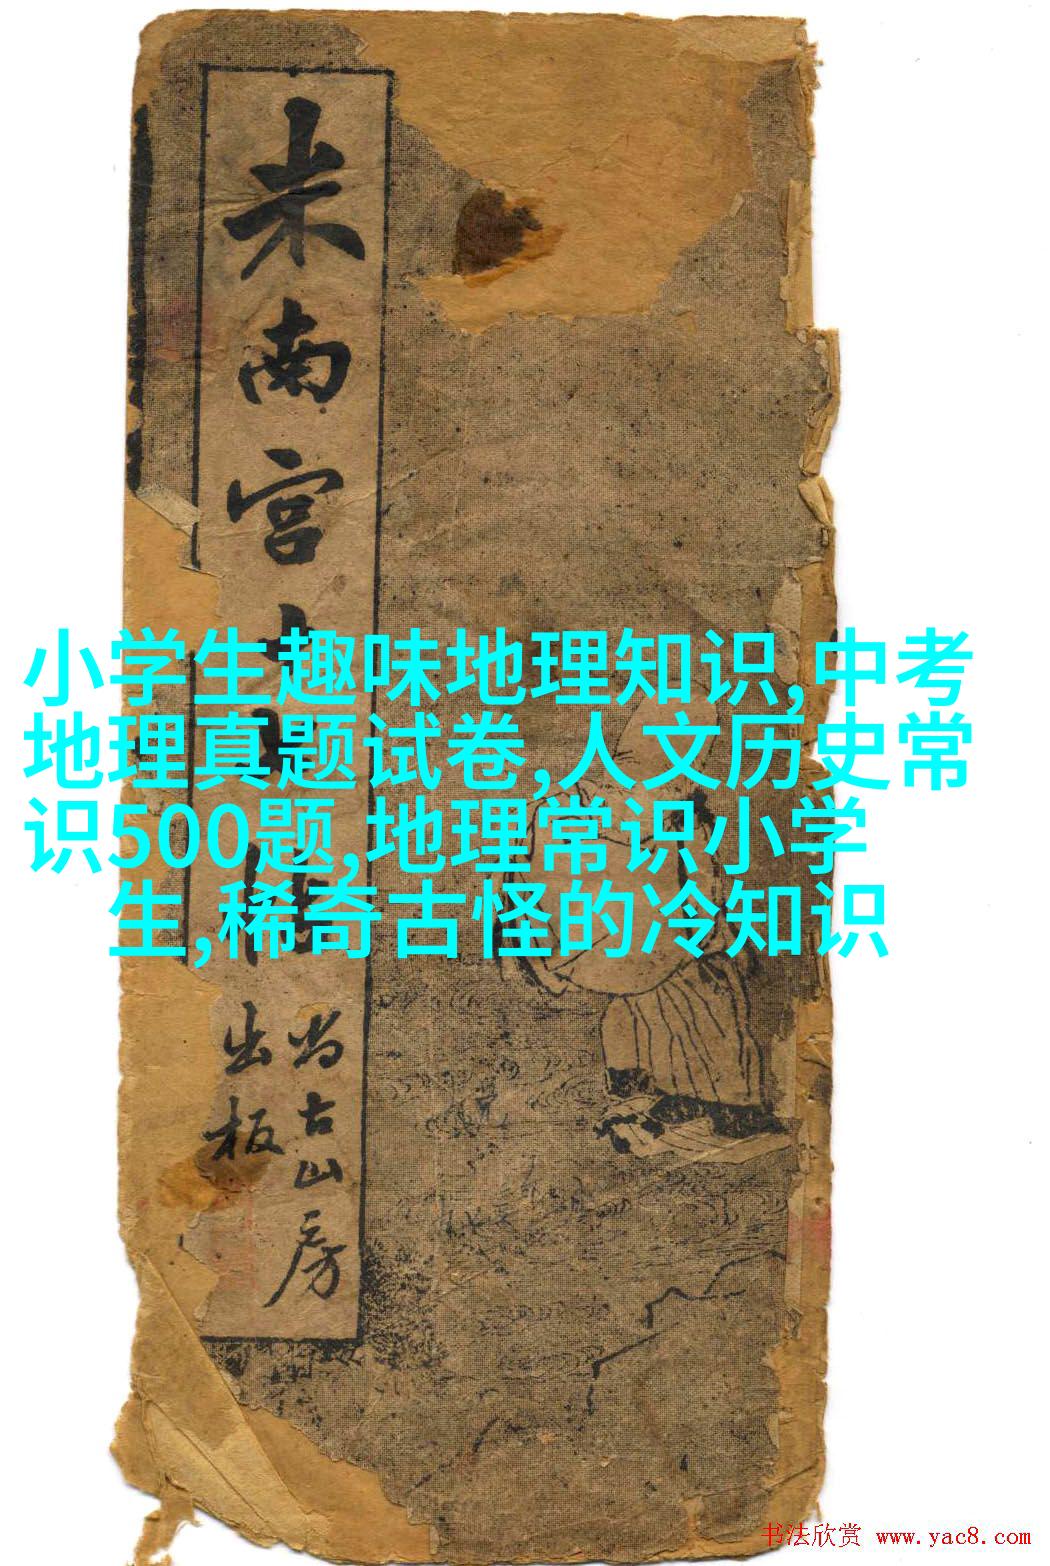 米南宫十
尚古山房
出板
小学生趣味地理知识,中考
地理真题试卷,人文历史常
识500题,地理常识小学
生,稀奇古怪的冷知识
书法欣赏 www.yac8.com